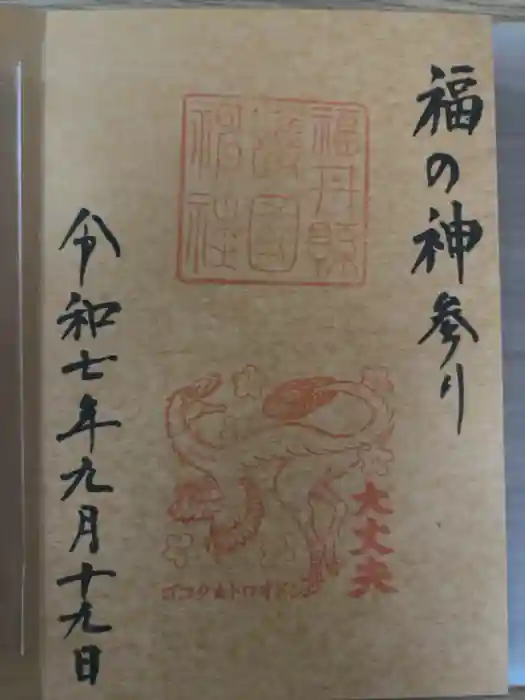 福の神参り
福井縣
護國
神社
大丈夫
ゴコク★トロオドン
令和七年九月十九日